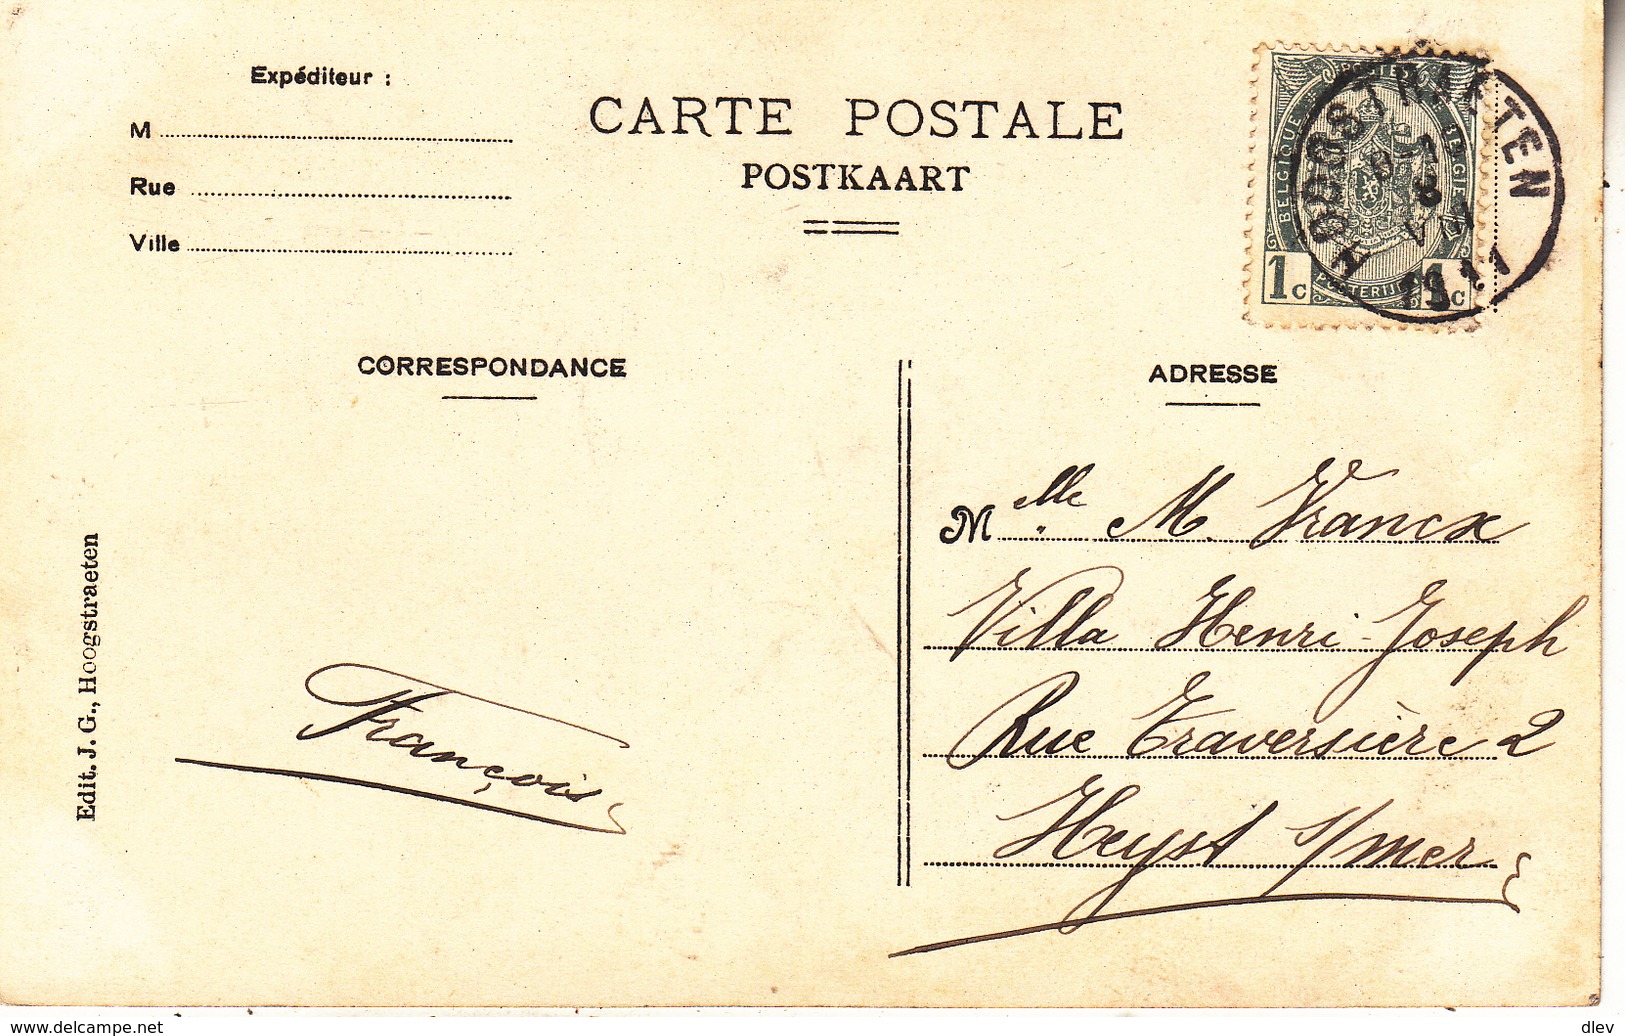 Expéditeur :
M
Rue
Ville
CARTE POSTALE
POSTKAART
POSTES
BELGIQUE
BELGIE
1c
POSTERIJEN
1c
HOOGSTRAETEN
8
1911
CORRESPONDANCE
ADRESSE
Edit. J. G., Hoogstraeten
François
Melle M. Vrancx
Villa Henri-Joseph
Rue Traversière 2
Heyst s/mer
www.delcampe.net
dlev